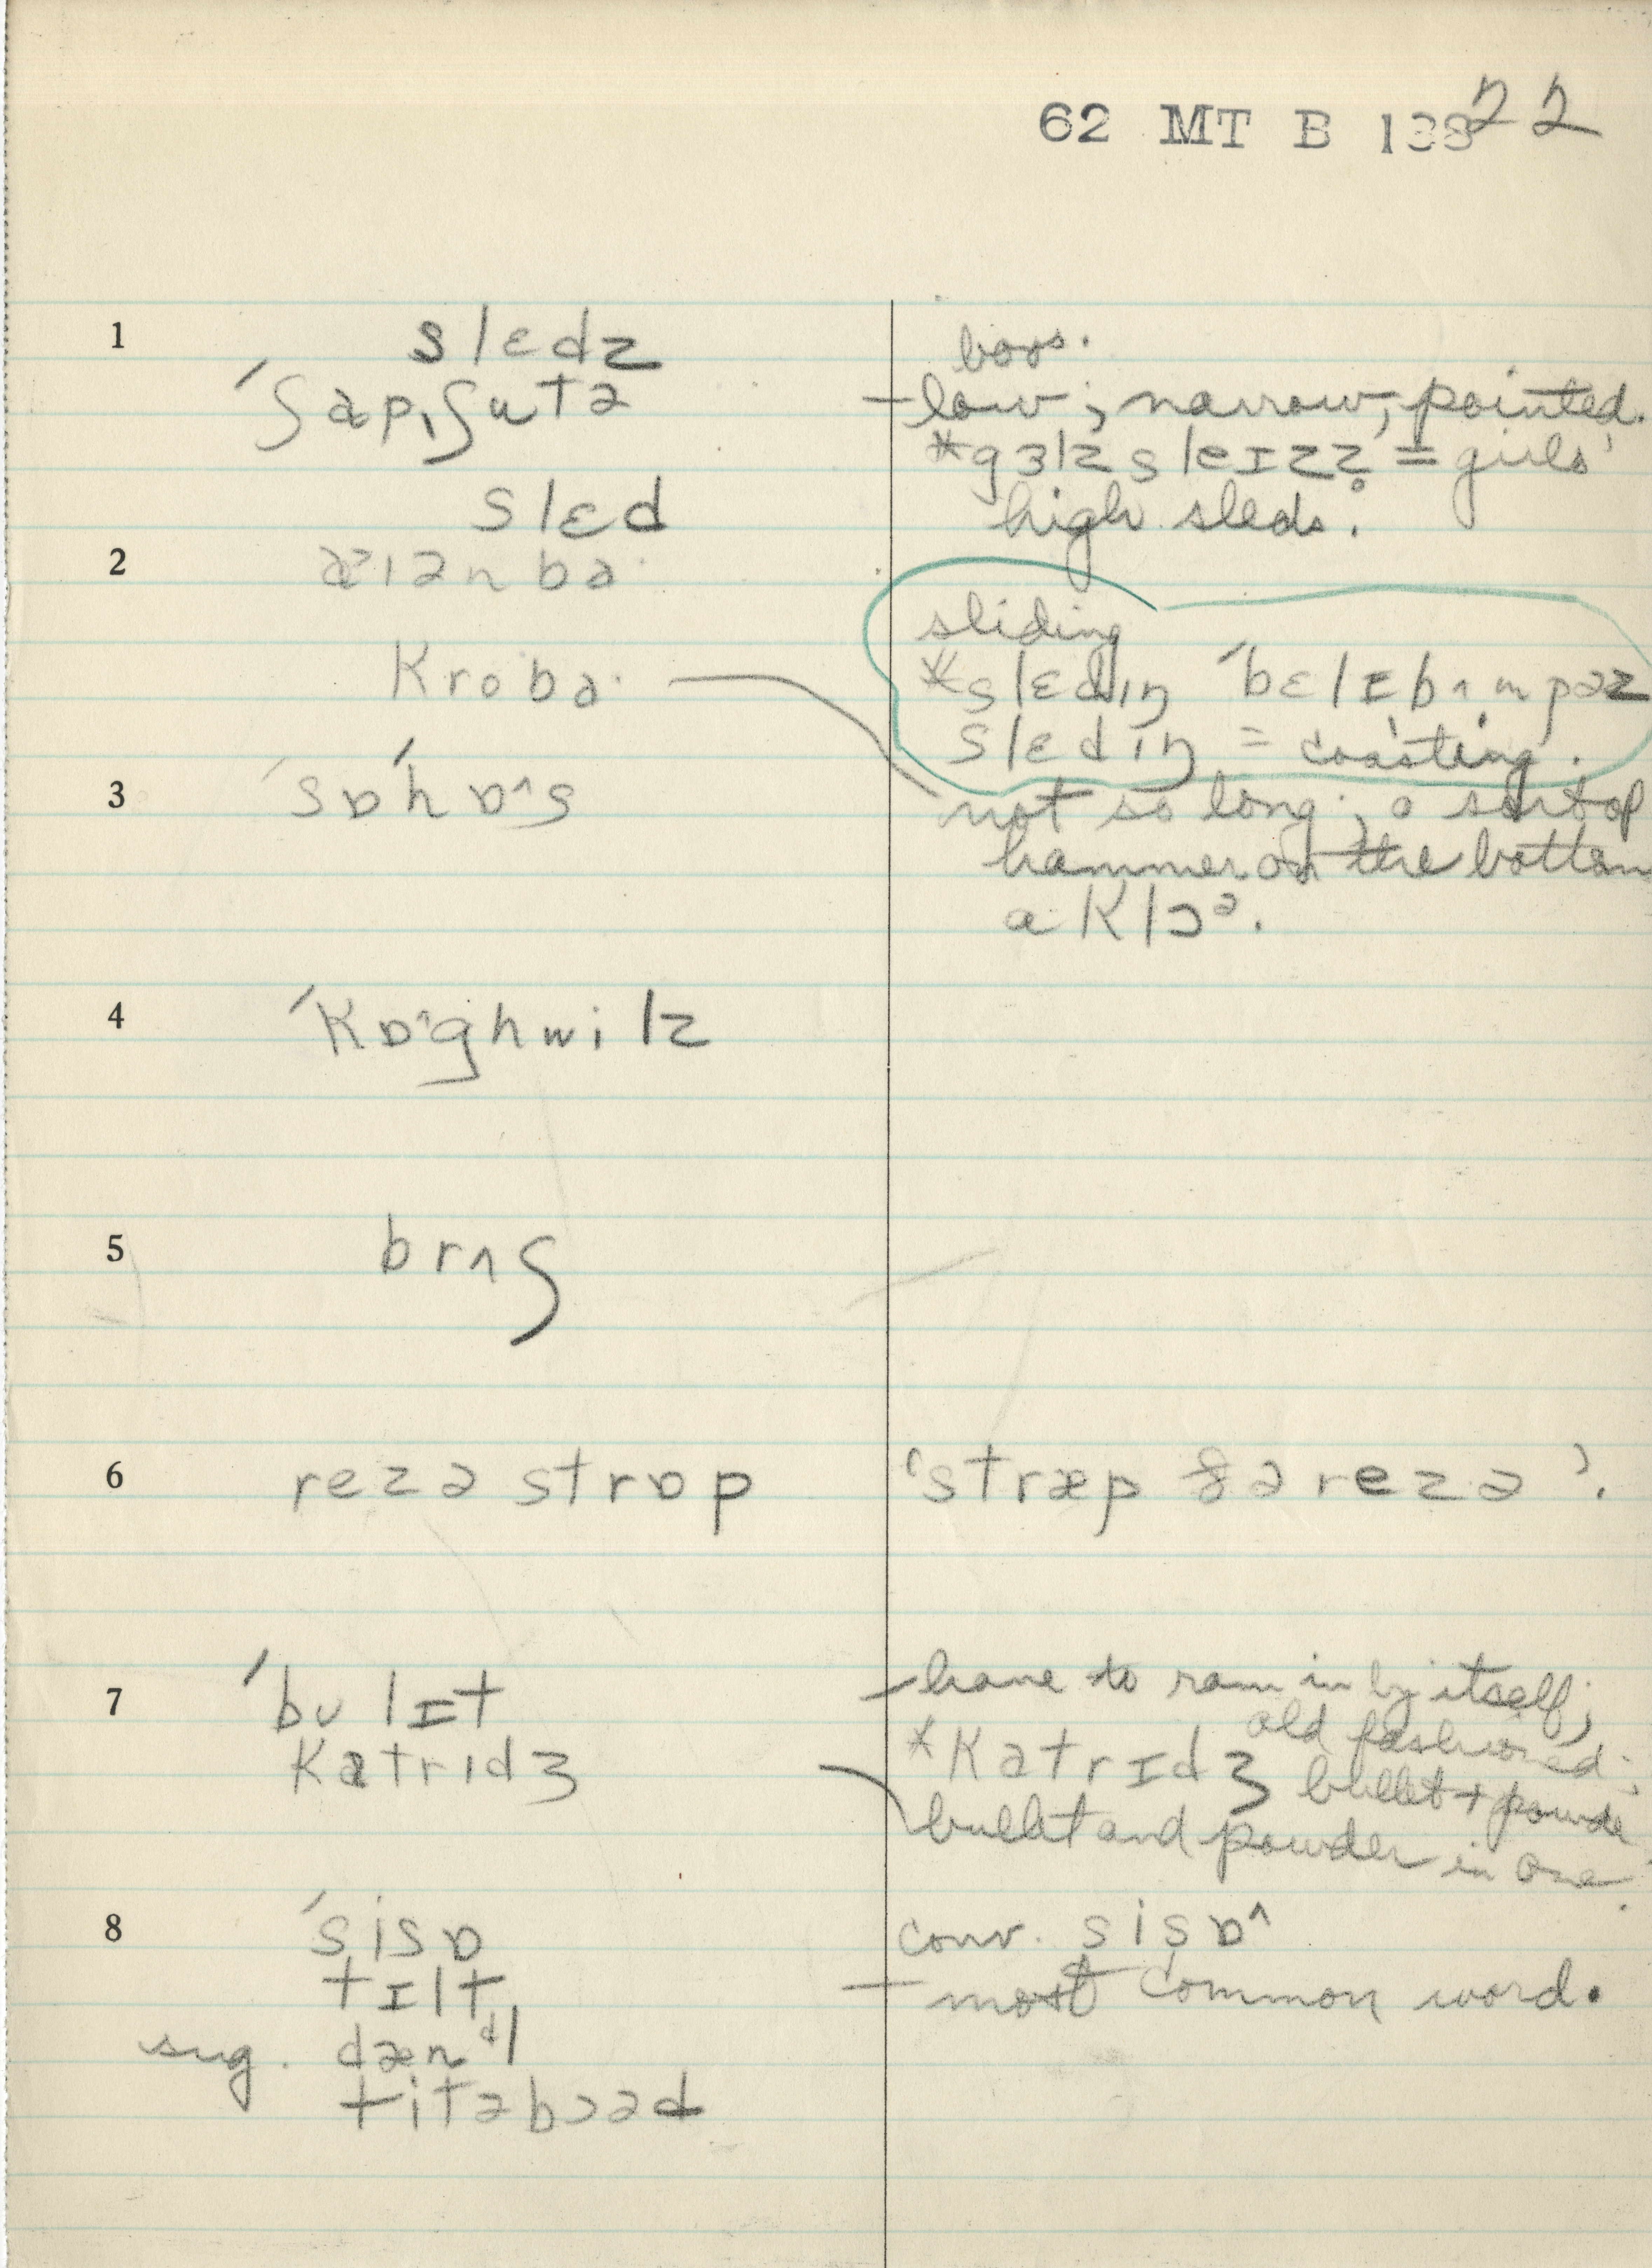 62 MT B 138 22
1 slɛdz
ˈʃapˌʃutə
slɛd
2 aɪənba
kroba
3 ˈsɒhɒ^s
4 ˈkɒ^ghwilz
5 brʌʃ
6 rezə strɒp
7 ˈbʊlɪt
katrɪdʒ
8 ˈsisɒ
tɪlt
sug. dæn dl
titəbɔəd
boys.
– low; narrow, pointed.
*gɜlz sleɪzz̥ = girls'
high sleds.
sliding
*slɛdɪŋ ˈbɛlɪbʌmpəz
slɛdɪŋ = coasting.
not so long; a sort of
hammer on the bottom
a klɔə.
'stræp ðə rezə'.
– have to ram in by itself;
old fashioned;
*katrɪdʒ bullet + powde
bullet and powder in one
conv. sisɒ^
– most common word.